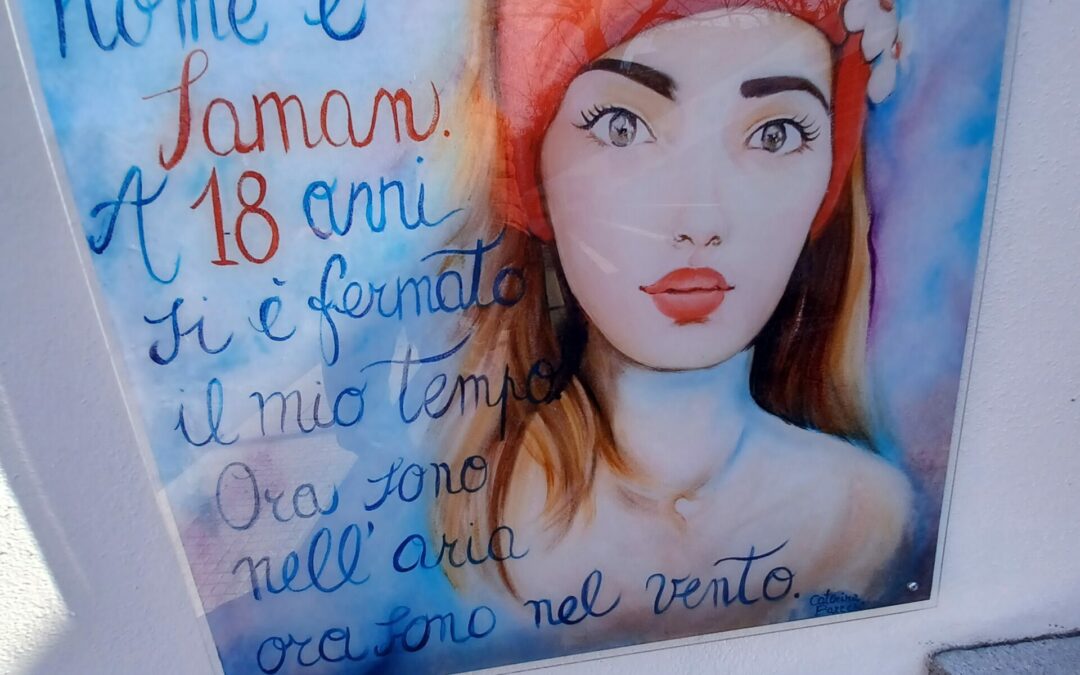 nome è
Saman.
A 18 anni
si è fermato
il mio tempo
Ora sono
nell'aria
ora sono nel vento.
Caterina